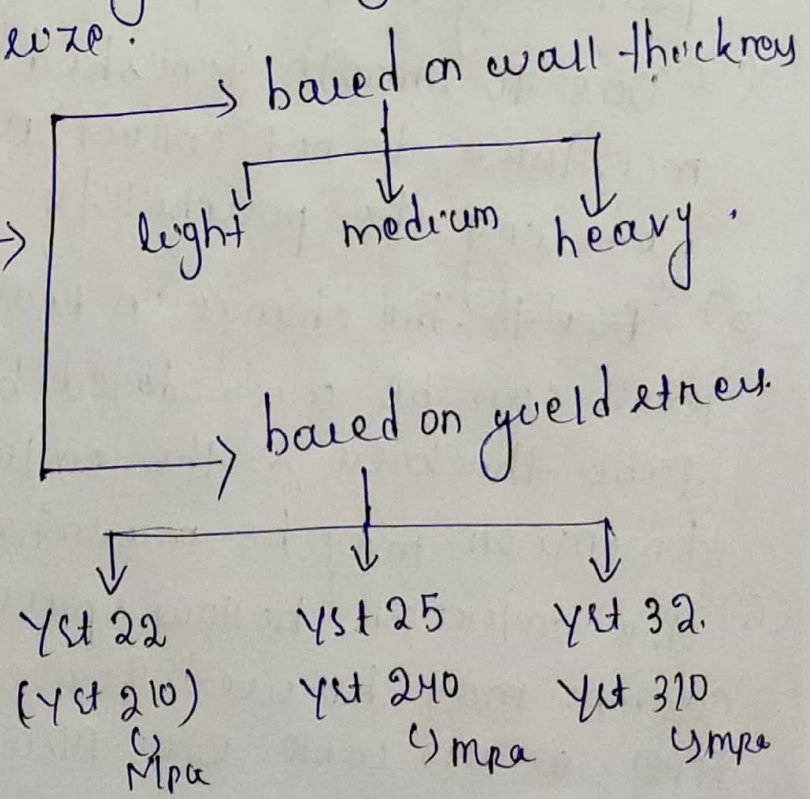 size.
based on wall thickness
light medium heavy.
based on yield stress.
Yst 22 Yst 25 Yst 32.
(Yst 210) Yst 240 Yst 310
Mpa mpa mpa